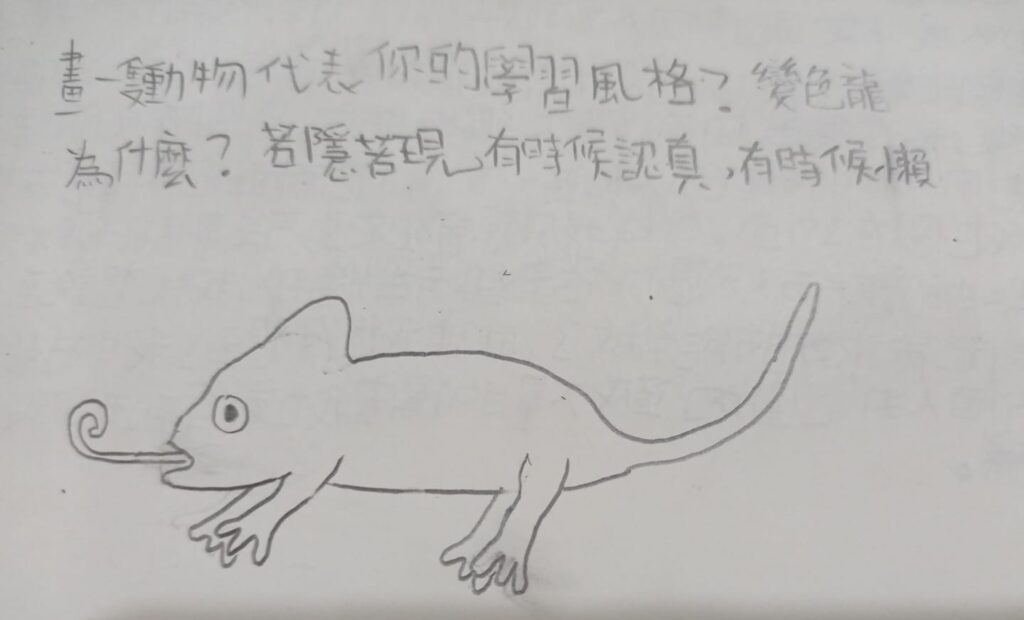 畫一動物代表你的學習風格？變色龍
為什麼？若隱若現，有時候認真，有時候懶